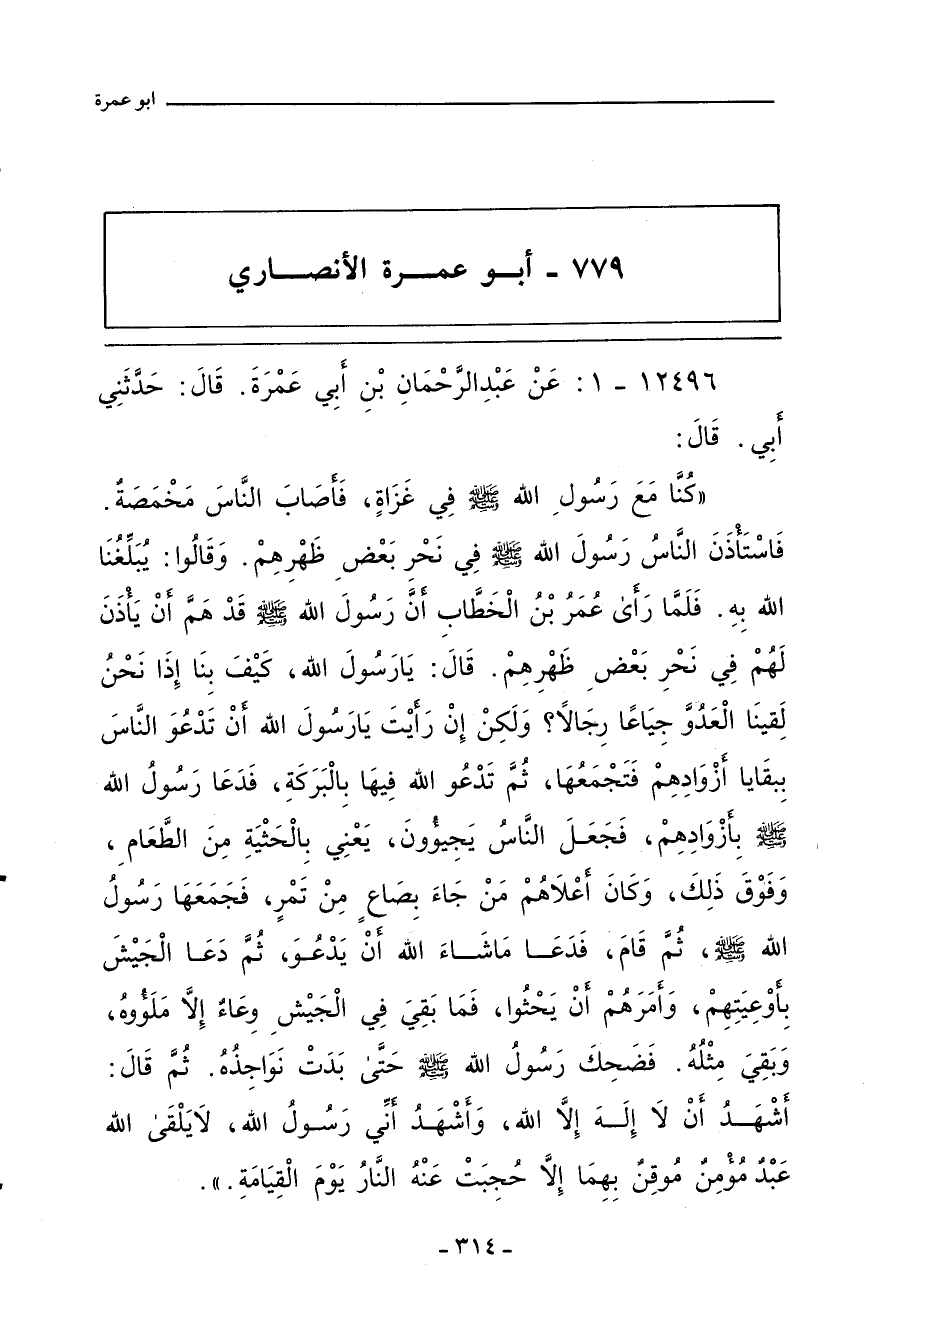 ابو عمرة
٧٧٩ - أبــو عمــــرة الأنصــــاري
١٢٤٩٦ - ١ : عَنْ عَبْدِالرَّحْمَانِ بْنِ أَبِي عَمْرَةَ. قَالَ: حَدَّثَنِي
أَبِي. قَالَ:
«كُنَّا مَعَ رَسُولِ الله ﷺ فِي غَزَاةٍ، فَأَصَابَ النَّاسَ مَخْمَصَةٌ.
فَاسْتَأْذَنَ النَّاسُ رَسُولَ الله ﷺ فِي نَحْرِ بَعْضِ ظَهْرِهِمْ. وَقَالُوا: يُبَلِّغُنَا
الله بِهِ. فَلَمَّا رَأَىٰ عُمَرُ بْنُ الْخَطَّابِ أَنَّ رَسُولَ الله ﷺ قَدْ هَمَّ أَنْ يَأْذَنَ
لَهُمْ فِي نَحْرِ بَعْضِ ظَهْرِهِمْ. قَالَ: يَارَسُولَ الله، كَيْفَ بِنَا إِذَا نَحْنُ
لَقِينَا الْعَدُوَّ جِيَاعًا رِجَالًا؟ وَلَكِنْ إِنْ رَأَيْتَ يَارَسُولَ الله أَنْ تَدْعُوَ النَّاسَ
بِبَقَايا أَزْوَادِهِمْ فَتَجْمَعُهَا، ثُمَّ تَدْعُو الله فِيهَا بِالْبَرَكَةِ، فَدَعَا رَسُولُ الله
ﷺ بِأَزْوَادِهِمْ، فَجَعَلَ النَّاسُ يَجِيؤُونَ، يَعْنِي بِالْحَثْيَةِ مِنَ الطَّعَامِ،
وَفَوْقَ ذَلِكَ، وَكَانَ أَعْلَاهُمْ مَنْ جَاءَ بِصَاعٍ مِنْ تَمْرٍ، فَجَمَعَهَا رَسُولُ
الله ﷺ، ثُمَّ قَامَ، فَدَعَــا مَاشَــاءَ الله أَنْ يَدْعُــوَ، ثُمَّ دَعَــا الْجَيْشَ
بِأَوْعِيَتِهِمْ، وَأَمَرَهُمْ أَنْ يَحْثُوا، فَمَا بَقِيَ فِي الْجَيْشِ وِعَاءٌ إِلَّا مَلَؤُوهُ،
وَبَقِيَ مِثْلُهُ. فَضَحِكَ رَسُولُ الله ﷺ حَتَّىٰ بَدَتْ نَوَاجِذُهُ. ثُمَّ قَالَ:
أَشْهَــدُ أَنْ لَا إِلَــهَ إِلَّا الله، وَأَشْهَــدُ أَنِّي رَسُــولُ الله، لَايَلْقَىٰ الله
عَبْدٌ مُؤْمِنٌ مُوقِنٌ بِهِمَا إِلَّا حُجِبَتْ عَنْهُ النَّارُ يَوْمَ الْقِيَامَةِ.».
- ٣١٤ -